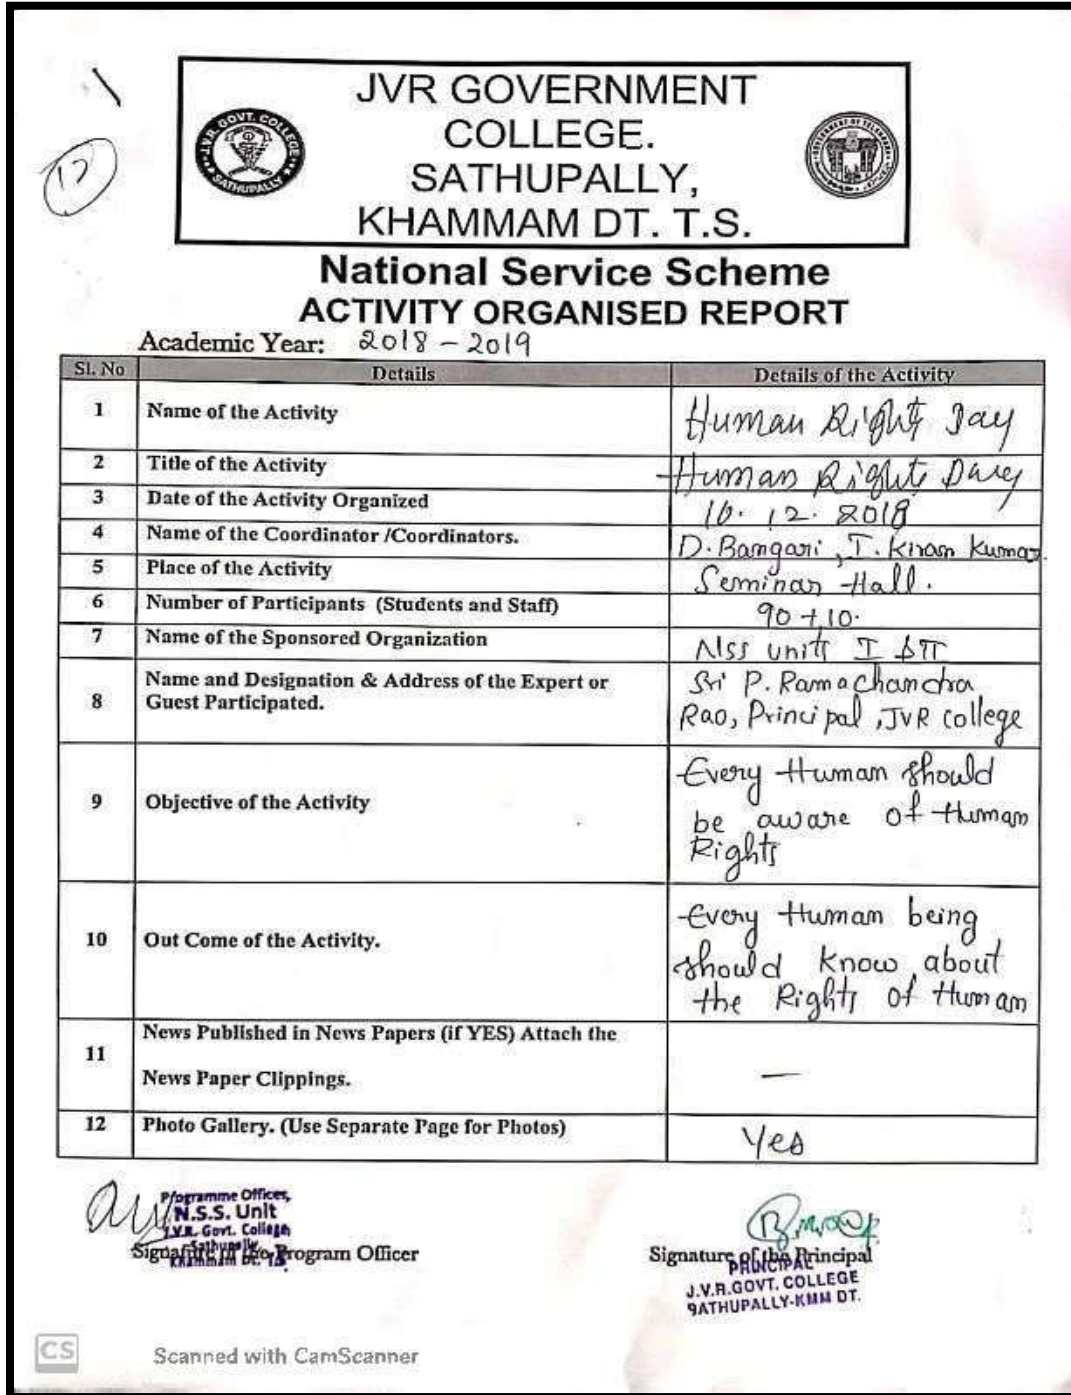 JVR GOVERNMENT
COLLEGE.
SATHUPALLY,
KHAMMAM DT. T.S.
J.V.R. GOVT. COLLEGE
SATHUPALLY
GOVERNMENT OF TELANGANA
17
National Service Scheme
ACTIVITY ORGANISED REPORT
Academic Year: 2018 - 2019
Sl. No Details Details of the Activity
1 Name of the Activity Human Right Day
2 Title of the Activity Human Right Day
3 Date of the Activity Organized 10.12.2018
4 Name of the Coordinator /Coordinators. D. Bangari, T. Kiran Kumar.
5 Place of the Activity Seminar Hall.
6 Number of Participants (Students and Staff) 90 + 10.
7 Name of the Sponsored Organization NSS units I & II
8 Name and Designation & Address of the Expert or
Guest Participated.
Sri P. Ramachandra
Rao, Principal, JVR college
9 Objective of the Activity
Every Human should
be aware of Human
Rights
10 Out Come of the Activity.
Every Human being
should Know about
the Rights of Human
11 News Published in News Papers (if YES) Attach the
News Paper Clippings.
—
12 Photo Gallery. (Use Separate Page for Photos) Yes
Programme Officer,
N.S.S. Unit
J.V.R. Govt. College
Sathupally
Khammam Dt. TS.
Signature of the Program Officer
Signature of the Principal
PRINCIPAL
J.V.R.GOVT. COLLEGE
SATHUPALLY-KMM DT.
CS Scanned with CamScanner